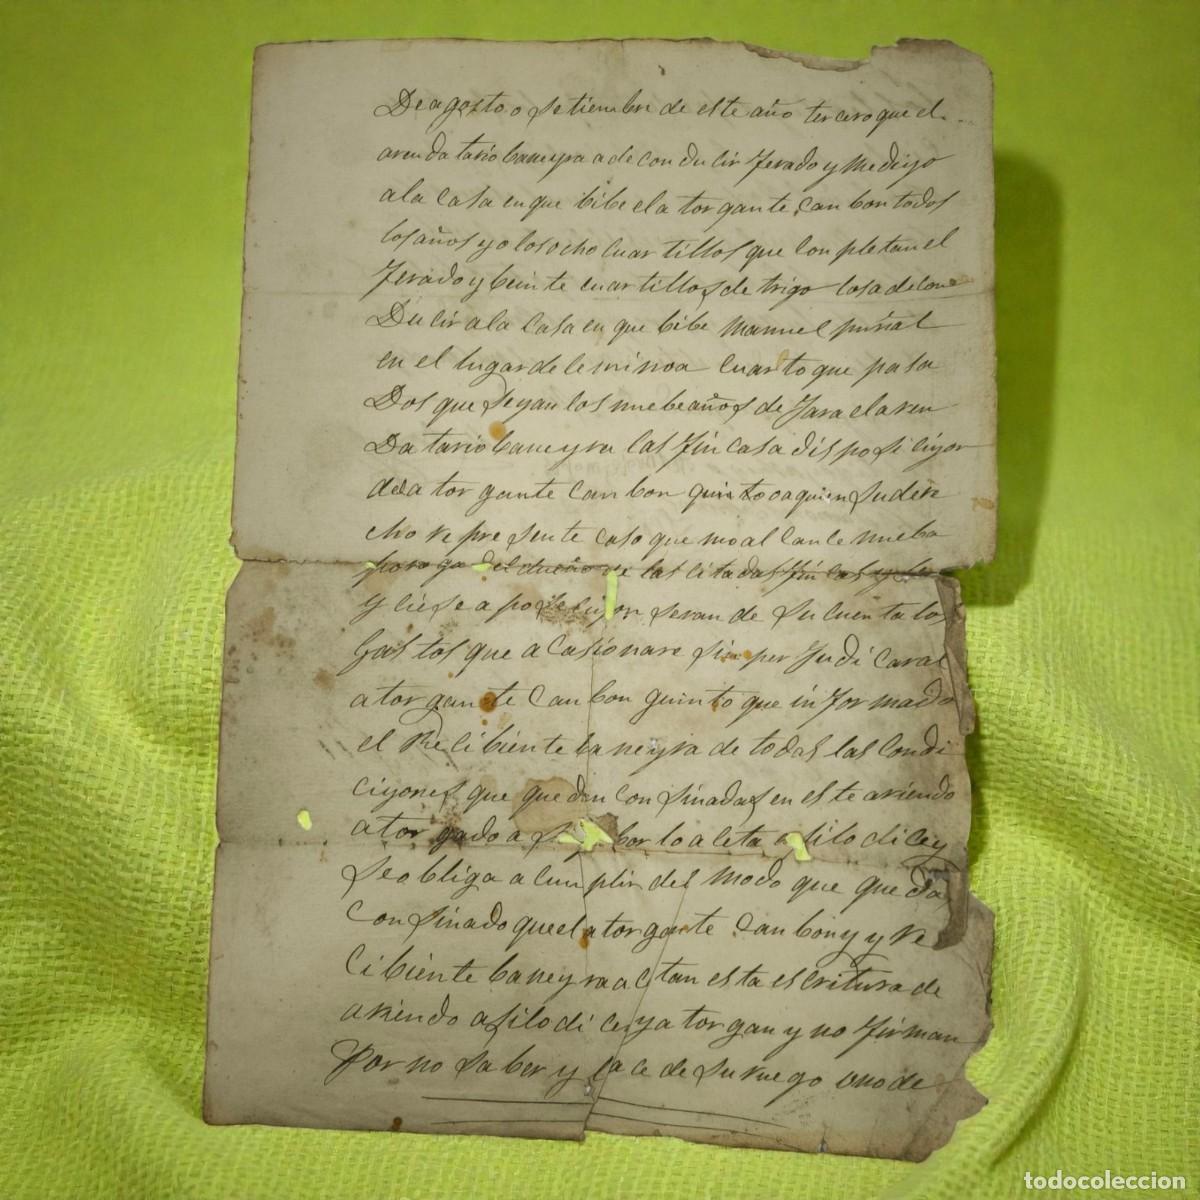 De agosto o Setiembre de este año tercero que el
arendatario baneyra a de conducir ferado y mediyo
a la casa en que bibe el atorgante canbon todos
los años y o los ocho cuartillos que conpletan el
ferado y beinte cuartillos de trigo los a de con
Ducir a la casa en que bibe manuel puñal
en el lugar de leminoa cuarto que pasa
Dos que Seyan los nuebe años dejara el aren
Datario baneyra las fincas a disposiciyon
del atorgante canbon quinto o a quien su dere
cho represente caso que no alcance nueba
poroga del dueño de las citadas fincas y
y ciese aposiciyon seran de su cuenta los
gastos que acasionare sin perjudicar al
atorgante canbon quinto que informado
el Recibiente baneyra de todas las condi
ciyones que quedan consinadas en este ariendo
atorgado a su labor lo aceta asilo dice y
Se obliga a cunplir del modo que queda
consinado que el atorgante canbon y y re
cibiente baneyra acetan esta escritura de
ariendo asilo dicey atorgan y no firman
Por no saber y lace de su ruego uno de
todocoleccion